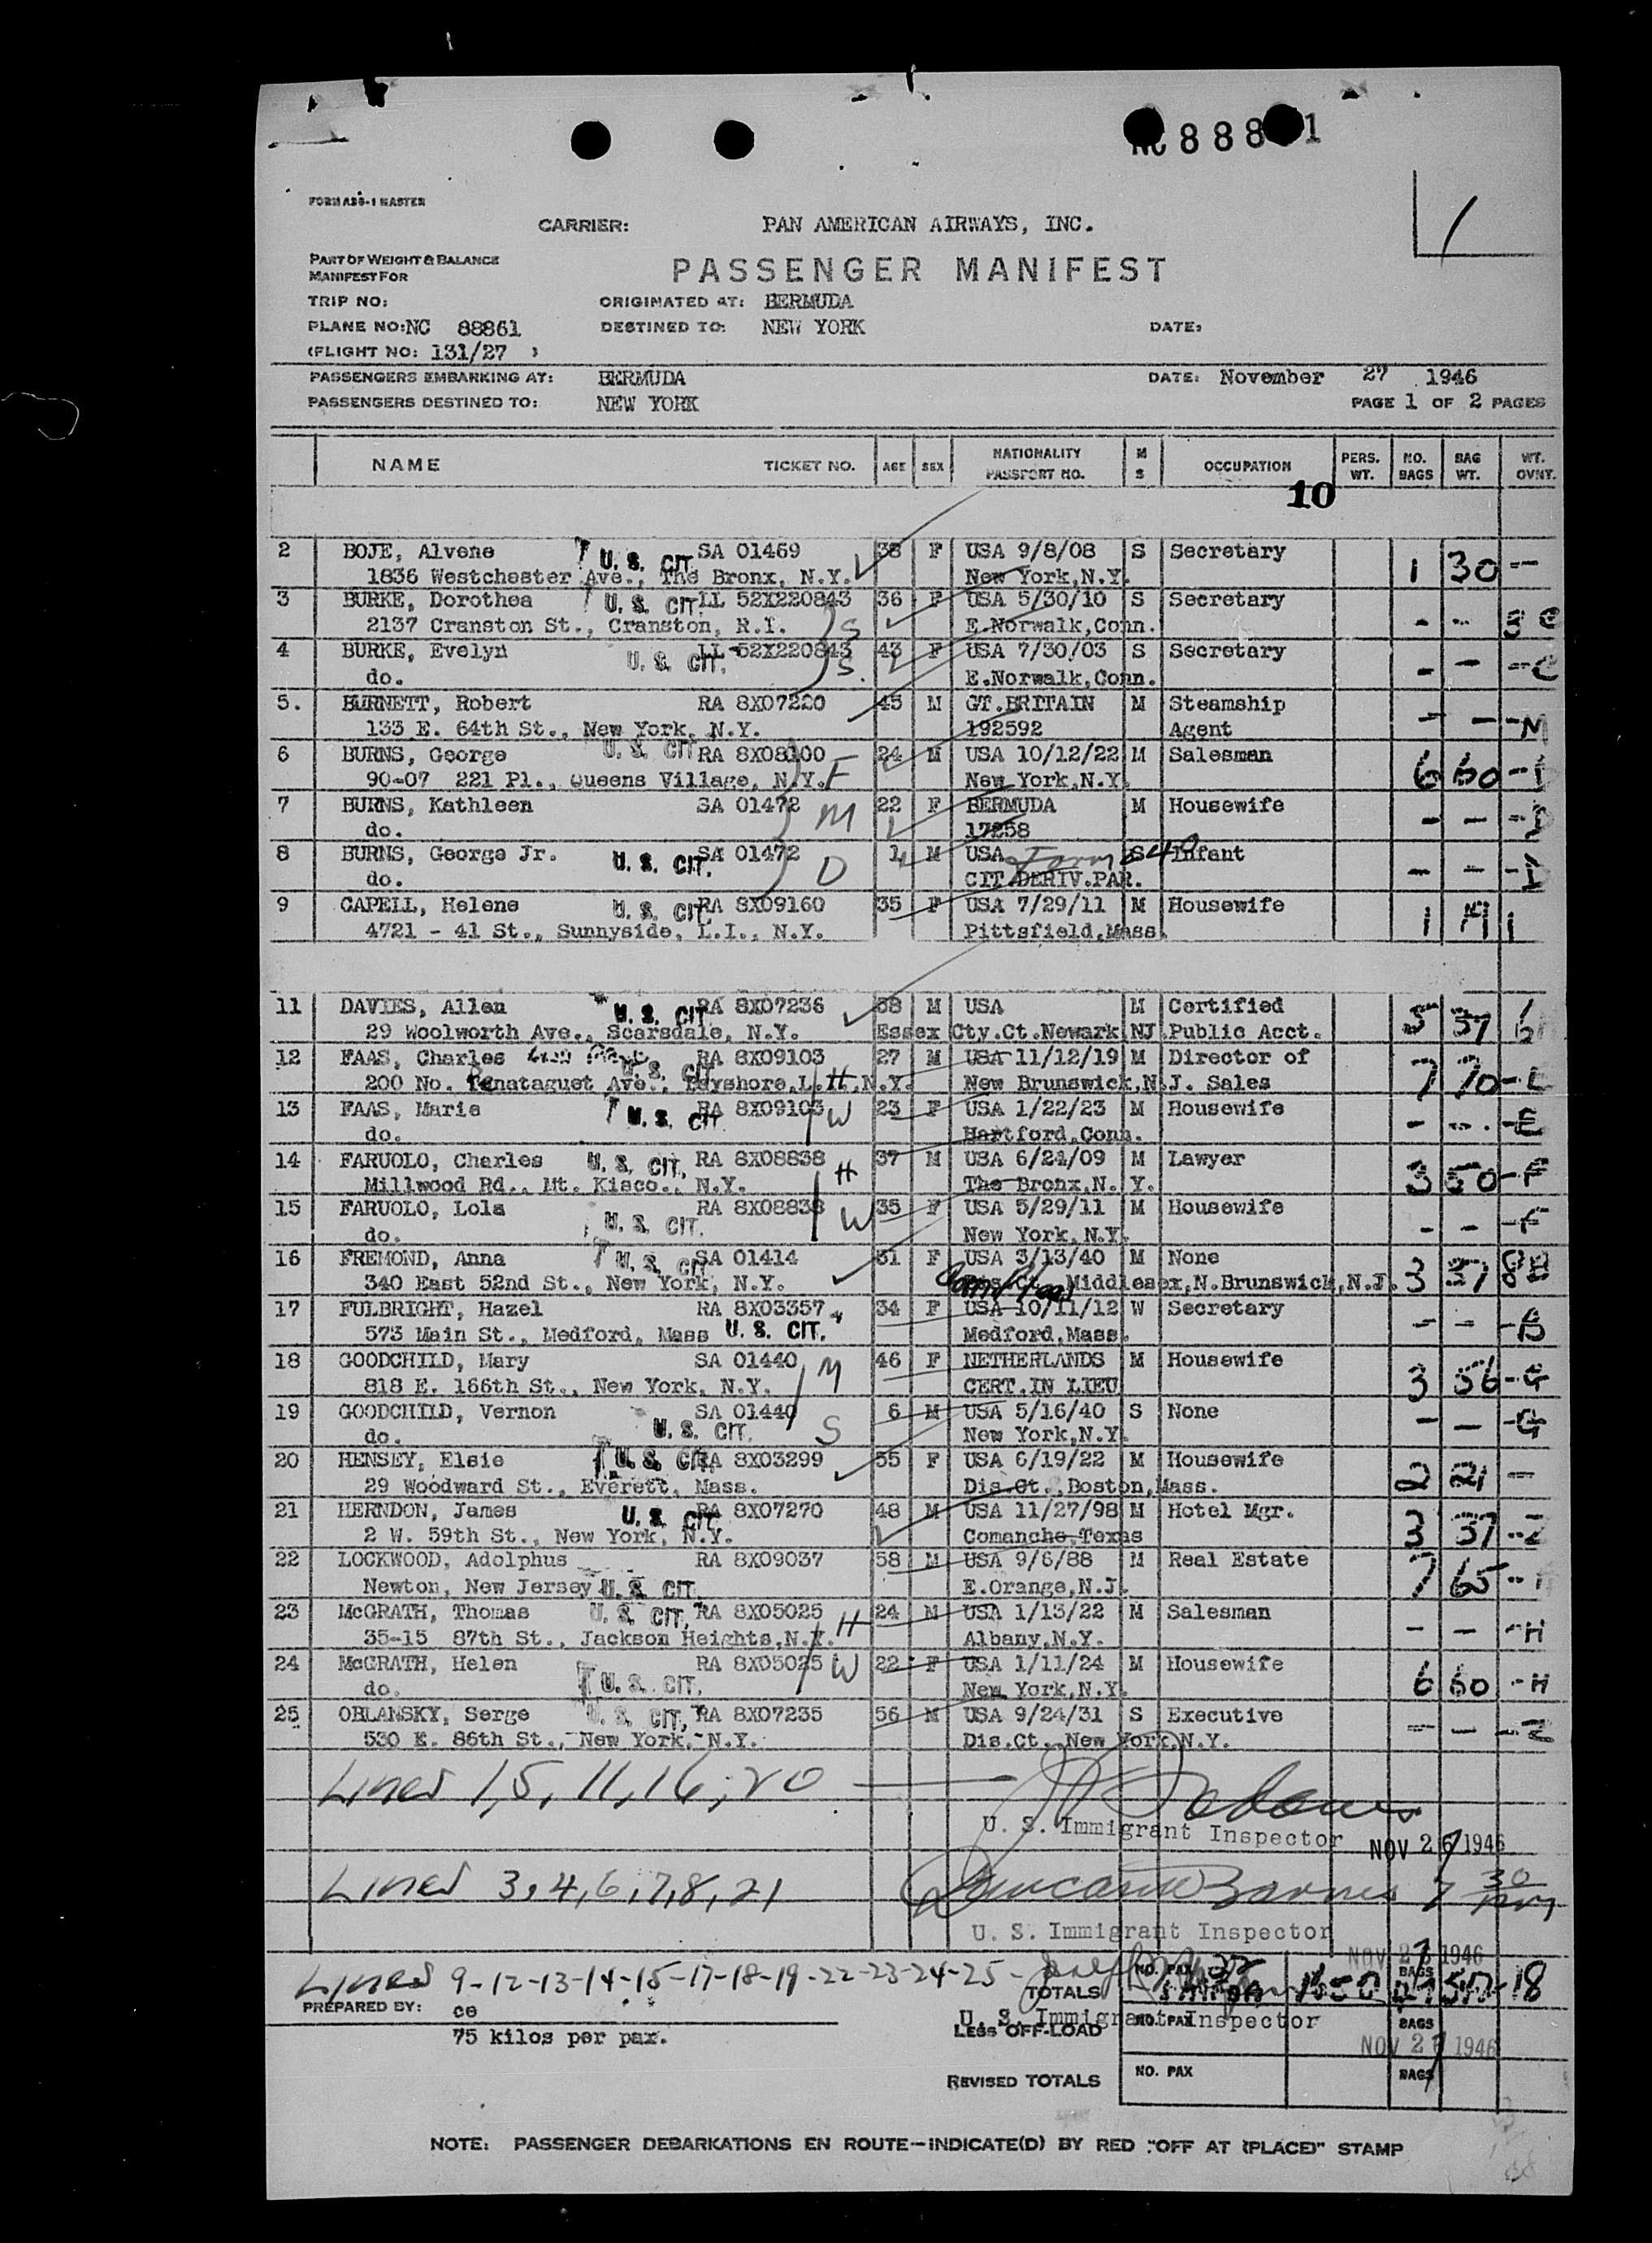 NC 888 1
FORM A86-1 MASTER
CARRIER: PAN AMERICAN AIRWAYS, INC.
PART OF WEIGHT & BALANCE
MANIFEST FOR
PASSENGER MANIFEST
TRIP NO: ORIGINATED AT: BERMUDA
PLANE NO: NC 88861 DESTINED TO: NEW YORK DATE:
(FLIGHT NO: 131/27 )
PASSENGERS EMBARKING AT: BERMUDA DATE: November 27 1946
PASSENGERS DESTINED TO: NEW YORK PAGE 1 OF 2 PAGES
NAME TICKET NO. AGE SEX NATIONALITY PASSPORT NO. M S OCCUPATION PERS. WT. NO. BAGS BAG WT. WT. OVNT.
10
2 BOJE, Alvene U. S. CIT. SA 01469 38 F USA 9/8/08 S Secretary 1 30 --
1836 Westchester Ave., The Bronx, N.Y. New York,N.Y.
3 BURKE, Dorothea U. S. CIT. LL 52X220843 36 F USA 5/30/10 S Secretary - --
2137 Cranston St., Cranston, R.I. S E.Norwalk,Conn.
4 BURKE, Evelyn U. S. CIT. LL 52X220843 43 F USA 7/30/03 S Secretary - - -C
do. S. E.Norwalk,Conn.
5. BURNETT, Robert RA 8X07220 45 M GT.BRITAIN M Steamship - - -M
133 E. 64th St., New York, N.Y. 192592 Agent
6 BURNS, George U. S. CIT. RA 8X08100 24 M USA 10/12/22 M Salesman 6 60
90-07 221 Pl., Queens Village, N.Y. F New York,N.Y.
7 BURNS, Kathleen SA 01472 M 22 F BERMUDA M Housewife - - -D
do. 17258
8 BURNS, George Jr. U. S. CIT. SA 01472 D M USA Form 640 S Infant - - -D
do. CIT.DERIV.PAR.
9 CAPELL, Helene U. S. CIT. RA 8X09160 35 F USA 7/29/11 M Housewife 1
4721 - 41 St., Sunnyside, L.I., N.Y. Pittsfield,Mass.
11 DAVIES, Allen U. S. CIT. RA 8X07236 38 M USA M Certified 5 37
29 Woolworth Ave., Scarsdale, N.Y. Essex Cty.Ct.Newark NJ. Public Acct.
12 FAAS, Charles U. S. CIT. RA 8X09103 27 M USA 11/12/19 M Director of 7 70-E
200 No. Penataguet Ave., Bayshore,L.I.,N.Y. H New Brunswick,N.J. Sales
13 FAAS, Marie U. S. CIT. RA 8X09103 W 23 F USA 1/22/23 M Housewife - -- -E
do. Hartford,Conn.
14 FARUOLO, Charles U. S. CIT. RA 8X08838 H 37 M USA 6/24/09 M Lawyer 3 50-F
Millwood Rd., Mt. Kisco., N.Y. The Bronx,N. Y.
15 FARUOLO, Lola U. S. CIT. RA 8X08838 W 35 F USA 5/29/11 M Housewife - - -F
do. New York,N.Y.
16 FREMOND, Anna U. S. CIT. SA 01414 31 F USA 3/13/40 M None 3 37
340 East 52nd St., New York, N.Y. Middlesex,N.Brunswick,N.J.
17 FULBRIGHT, Hazel RA 8X03357 34 F USA 10/11/12 W Secretary - - -B
573 Main St., Medford, Mass U. S. CIT. Medford,Mass.
18 GOODCHILD, Mary SA 01440 M 46 F NETHERLANDS M Housewife 3 56-G
818 E. 166th St., New York, N.Y. CERT.IN LIEU
19 GOODCHILD, Vernon U. S. CIT. SA 01440 S 6 M USA 5/16/40 S None - - -G
do. New York,N.Y.
20 HENSEY, Elsie U. S. CIT. RA 8X03299 55 F USA 6/19/22 M Housewife 2 21 -
29 Woodward St., Everett, Mass. Dis.Ct.,Boston,Mass.
21 HERNDON, James U. S. CIT. RA 8X07270 48 M USA 11/27/98 M Hotel Mgr. 3 37
2 W. 59th St., New York, N.Y. Comanche,Texas
22 LOCKWOOD, Adolphus RA 8X09037 58 M USA 9/6/88 M Real Estate 7 65
Newton, New Jersey U. S. CIT. E.Orange,N.J.
23 McGRATH, Thomas U. S. CIT. RA 8X05025 H 24 M USA 1/13/22 M Salesman - - -H
35-15 87th St., Jackson Heights,N.Y. Albany,N.Y.
24 McGRATH, Helen U. S. CIT. RA 8X05025 W 22 F USA 1/11/24 M Housewife 6 60 -H
do. New York,N.Y.
25 OBLANSKY, Serge U. S. CIT. RA 8X07235 56 M USA 9/24/31 S Executive - -
530 E. 86th St., New York, N.Y. Dis.Ct.,New York,N.Y.
Lines 1,5,11,16,20
U. S. Immigrant Inspector NOV 27 1946
Lines 3,4,6,7,8,21 7 30 pm
U. S. Immigrant Inspector NOV 27 1946
Lines 9-12-13-14-15-17-18-19-22-23-24-25- Joseph
TOTALS NO. PAX BAGS
PREPARED BY: ce
U. S. Immigrant Inspector
75 kilos per pax. LESS OFF-LOAD NO. PAX BAGS
NOV 27 1946
REVISED TOTALS NO. PAX BAGS
NOTE: PASSENGER DEBARKATIONS EN ROUTE--INDICATE(D) BY RED "OFF AT (PLACE)" STAMP